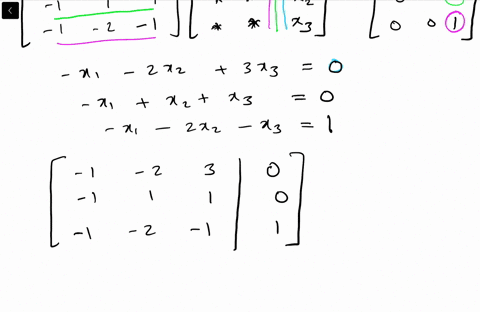 -1 1 1
-1 -2 -1 * * x3 0 0 1
-x1 - 2x2 + 3x3 = 0
-x1 + x2 + x3 = 0
-x1 - 2x2 - x3 = 1
-1 -2 3 | 0
-1 1 1 | 0
-1 -2 -1 | 1